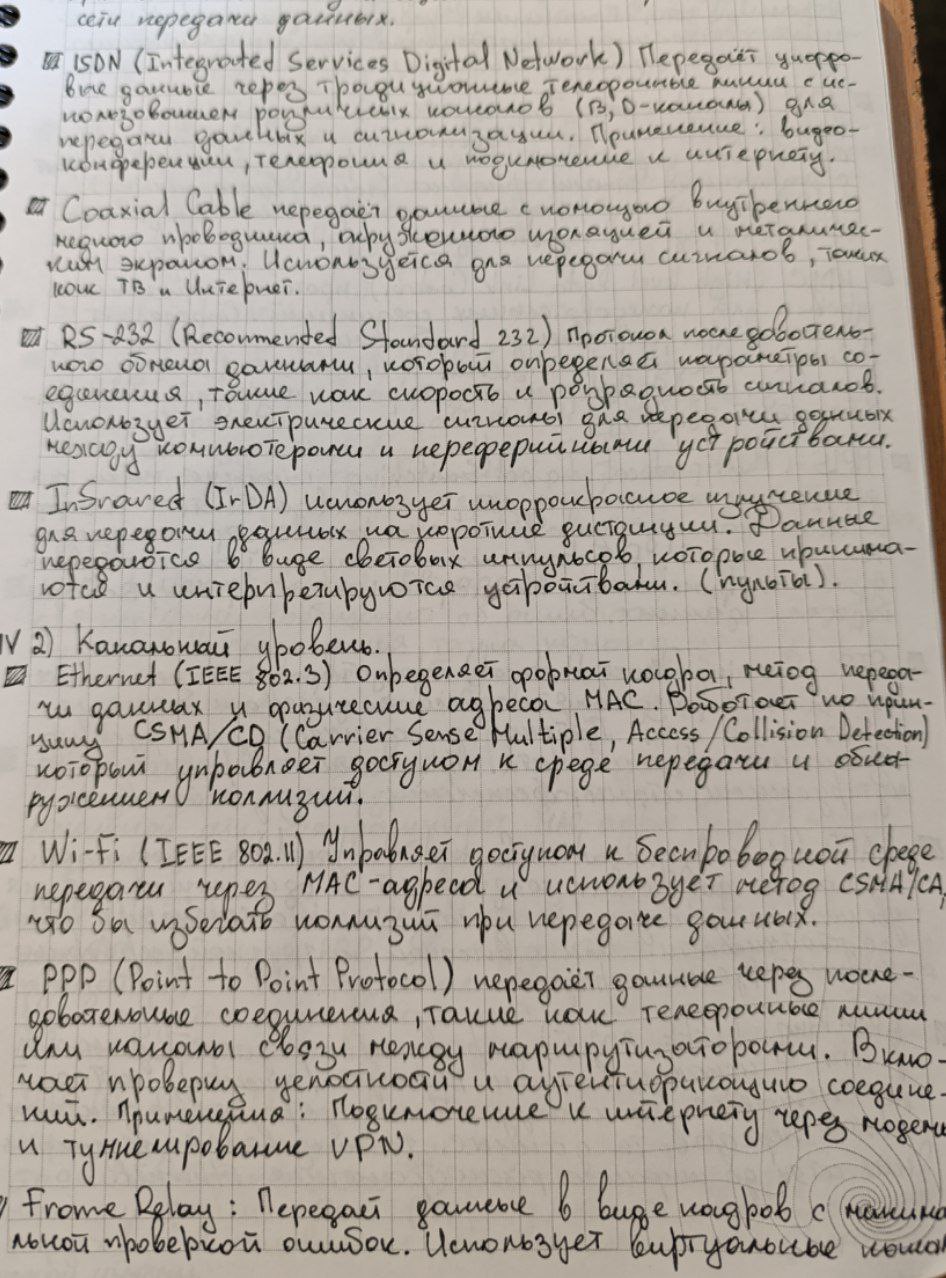 сети передачи данных.
ISDN (Integrated Services Digital Network) Передаёт цифро-
вые данные через традиционные телефонные линии с ис-
пользованием различных каналов (B, D-каналы) для
передачи данных и сигнализации. Применение: видео-
конференции, телефония и подключение к интернету.
Coaxial Cable передаёт данные с помощью внутреннего
медного проводника, окружённого изоляцией и металичес-
ким экраном. Используется для передачи сигналов, таких
как ТВ и Интернет.
RS-232 (Recommented Standard 232) Протокол последователь-
ного обмена данными, который определяет параметры со-
единения, такие как скорость и разрядность сигналов.
Использует электрические сигналы для передачи данных
между компьютерами и переферийными устройствами.
InSrared (IrDA) использует инфракрасное излучение
для передачи данных на короткие дистанции. Данные
передаются в виде световых импульсов, которые принима-
ются и интерпретируются устройствами. (пульты).
IV 2) Канальный уровень.
Ethernet (IEEE 802.3) Определяет формат кадра, метод переда-
чи данных и физические адреса MAC. Работает по прин-
ципу CSMA/CD (Carrier Sense Multiple, Acccss/Collision Detection)
который управляет доступом к среде передачи и обна-
ружением коллизий.
Wi-Fi (IEEE 802.11) Управляет доступом к беспроводной среде
передачи через MAC-адреса и использует метод CSMA/CA,
что бы избегать коллизий при передаче данных.
PPP (Point to Point Protocol) передаёт данные через после-
довательные соединения, такие как телефонные линии
или каналы связи между маршрутизаторами. Вклю-
чает проверку целостности и аутентификацию соедине-
ний. Применения: Подключение к интернету через модемы
и туннелирование VPN.
Frame Relay: Передаёт данные в виде кадров с минима
льной проверкой ошибок. Использует виртуальные